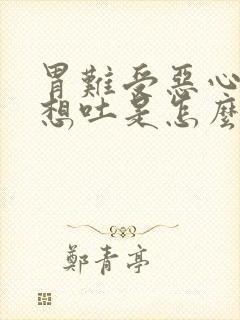 胃難受惡心
想吐是怎麼
鄭青亭